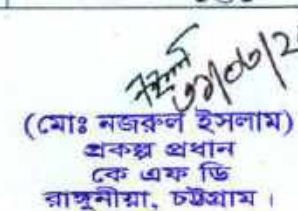 (মোঃ নজরুল ইসলাম)
প্রকল্প প্রধান
কে এফ ডি
রাঙ্গুনীয়া, চট্টগ্রাম ।